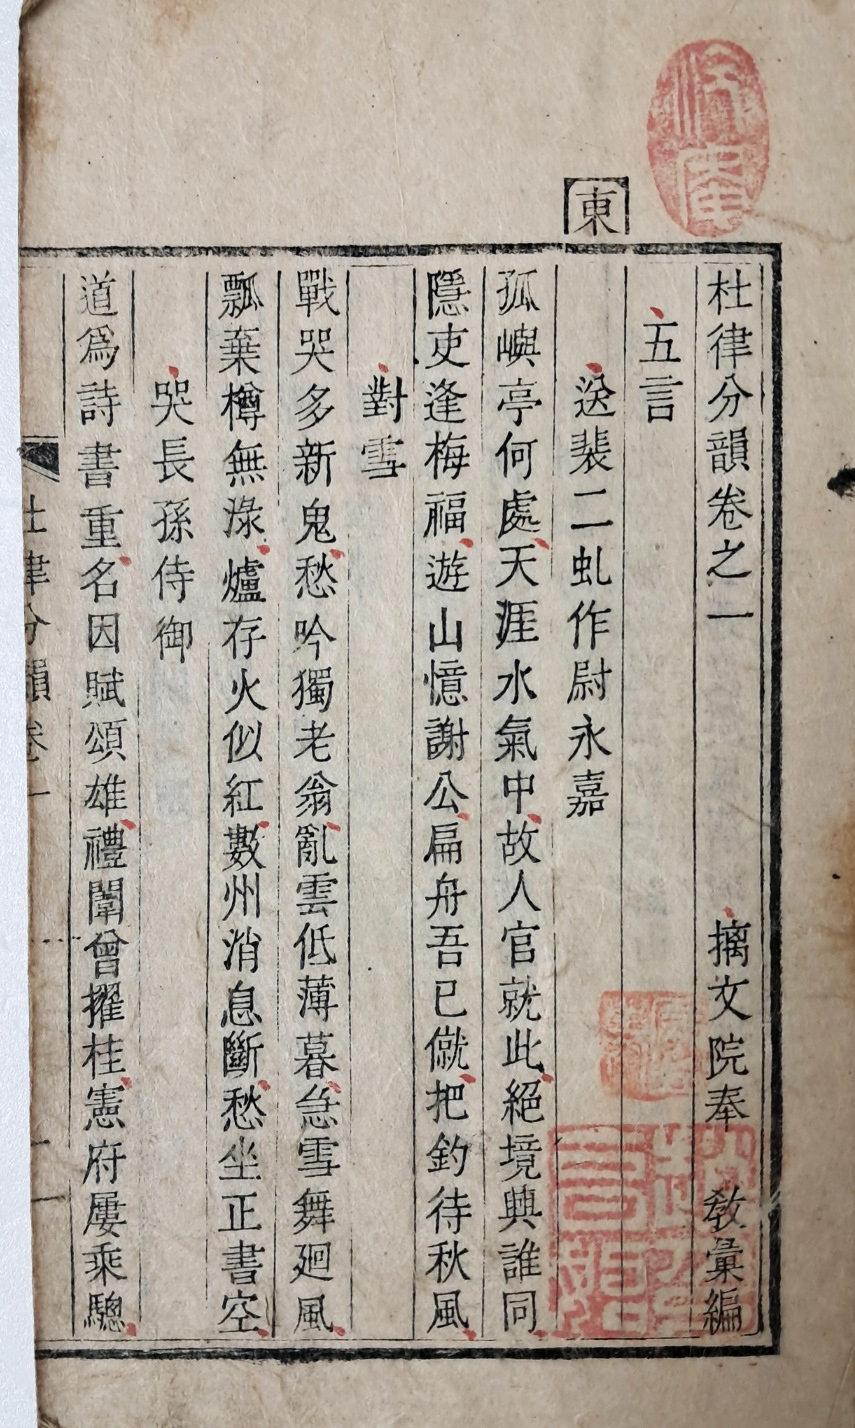 東
杜律分韻卷之一 摛文院奉 敎彙編
五言
送裴二虬作尉永嘉
孤嶼亭何處天涯水氣中故人官就此絕境興誰同
隱吏逢梅福遊山憶謝公扁舟吾已僦把釣待秋風
對雪
戰哭多新鬼愁吟獨老翁亂雲低薄暮急雪舞廻風
瓢棄樽無淥爐存火似紅數州消息斷愁坐正書空
哭長孫侍御
道爲詩書重名因賦頌雄禮闈曾擢桂憲府屢乘驄
杜律分韻卷一